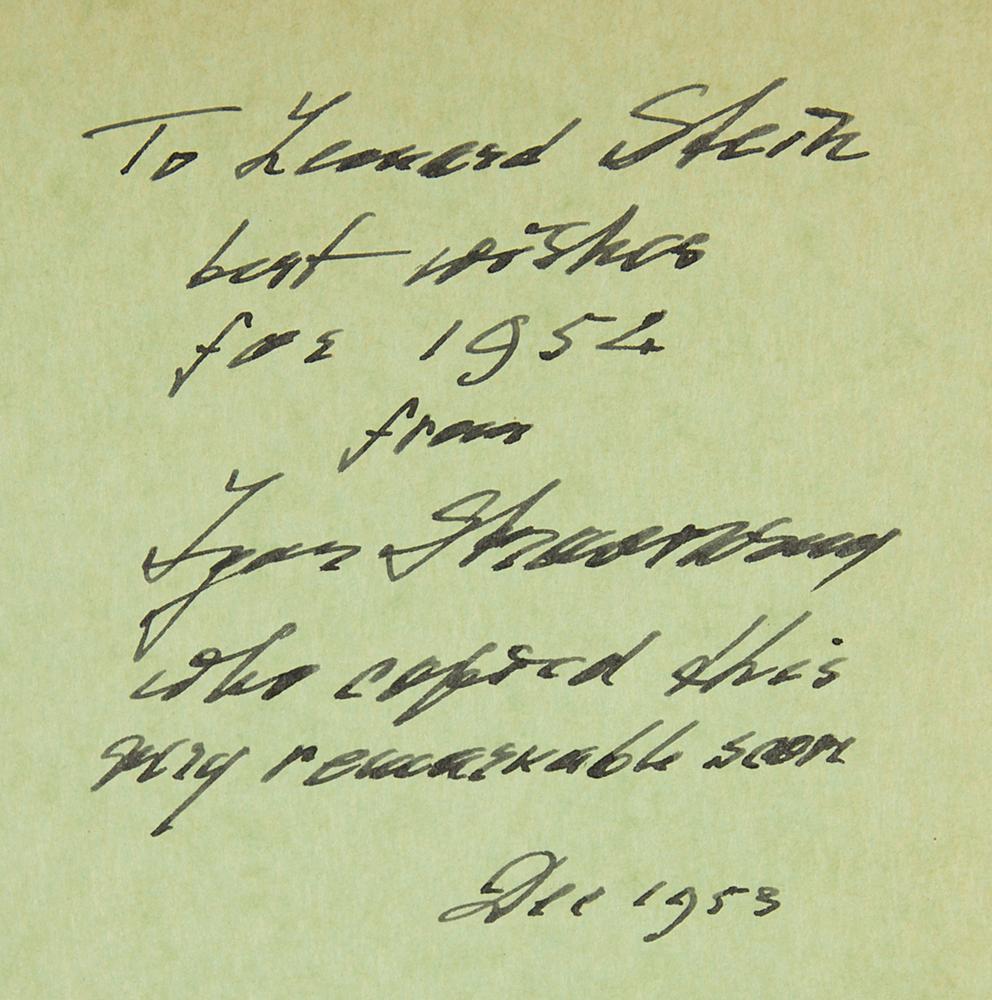 To Leonard Stein
best wishes
for 1954
from
Igor Strawinsky
who copied this
very remarkable score
Dec 1953